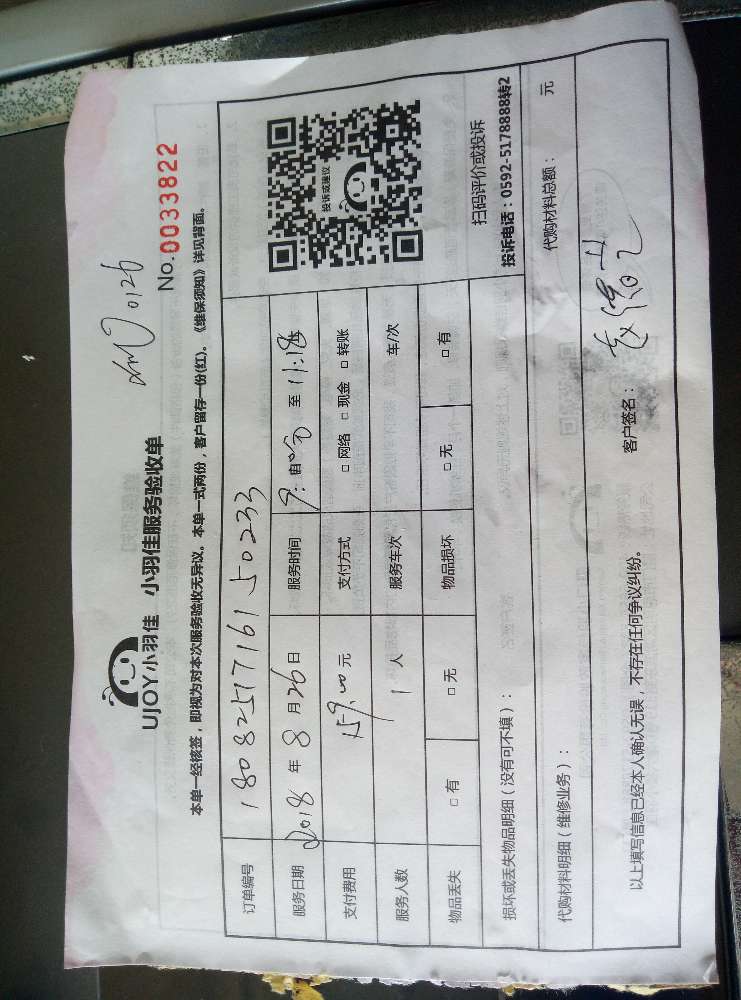 0126
No.0033822
UJOY小羽佳 小羽佳服务验收单
本单一经核签，即视为对本次服务验收无异议。本单一式两份，客户留存一份(红)。《维保须知》详见背面。
订单编号 180825171615 0233
服务日期 2018 年 8 月 26 日 服务时间 9: 至 11:18
支付费用 159.00 元 支付方式 □ 网络 □ 现金 □ 转账
服务人数 1 人 服务车次 车/次
物品丢失 □ 有 □ 无 物品损坏 □ 无 □ 有
投诉或建议
扫码评价或投诉
投诉电话：0592-5178888转2
损坏或丢失物品明细（没有可不填）：
代购材料明细（维修业务）： 代购材料总额： 元
以上填写信息已经本人确认无误，不存在任何争议纠纷。 客户签名：